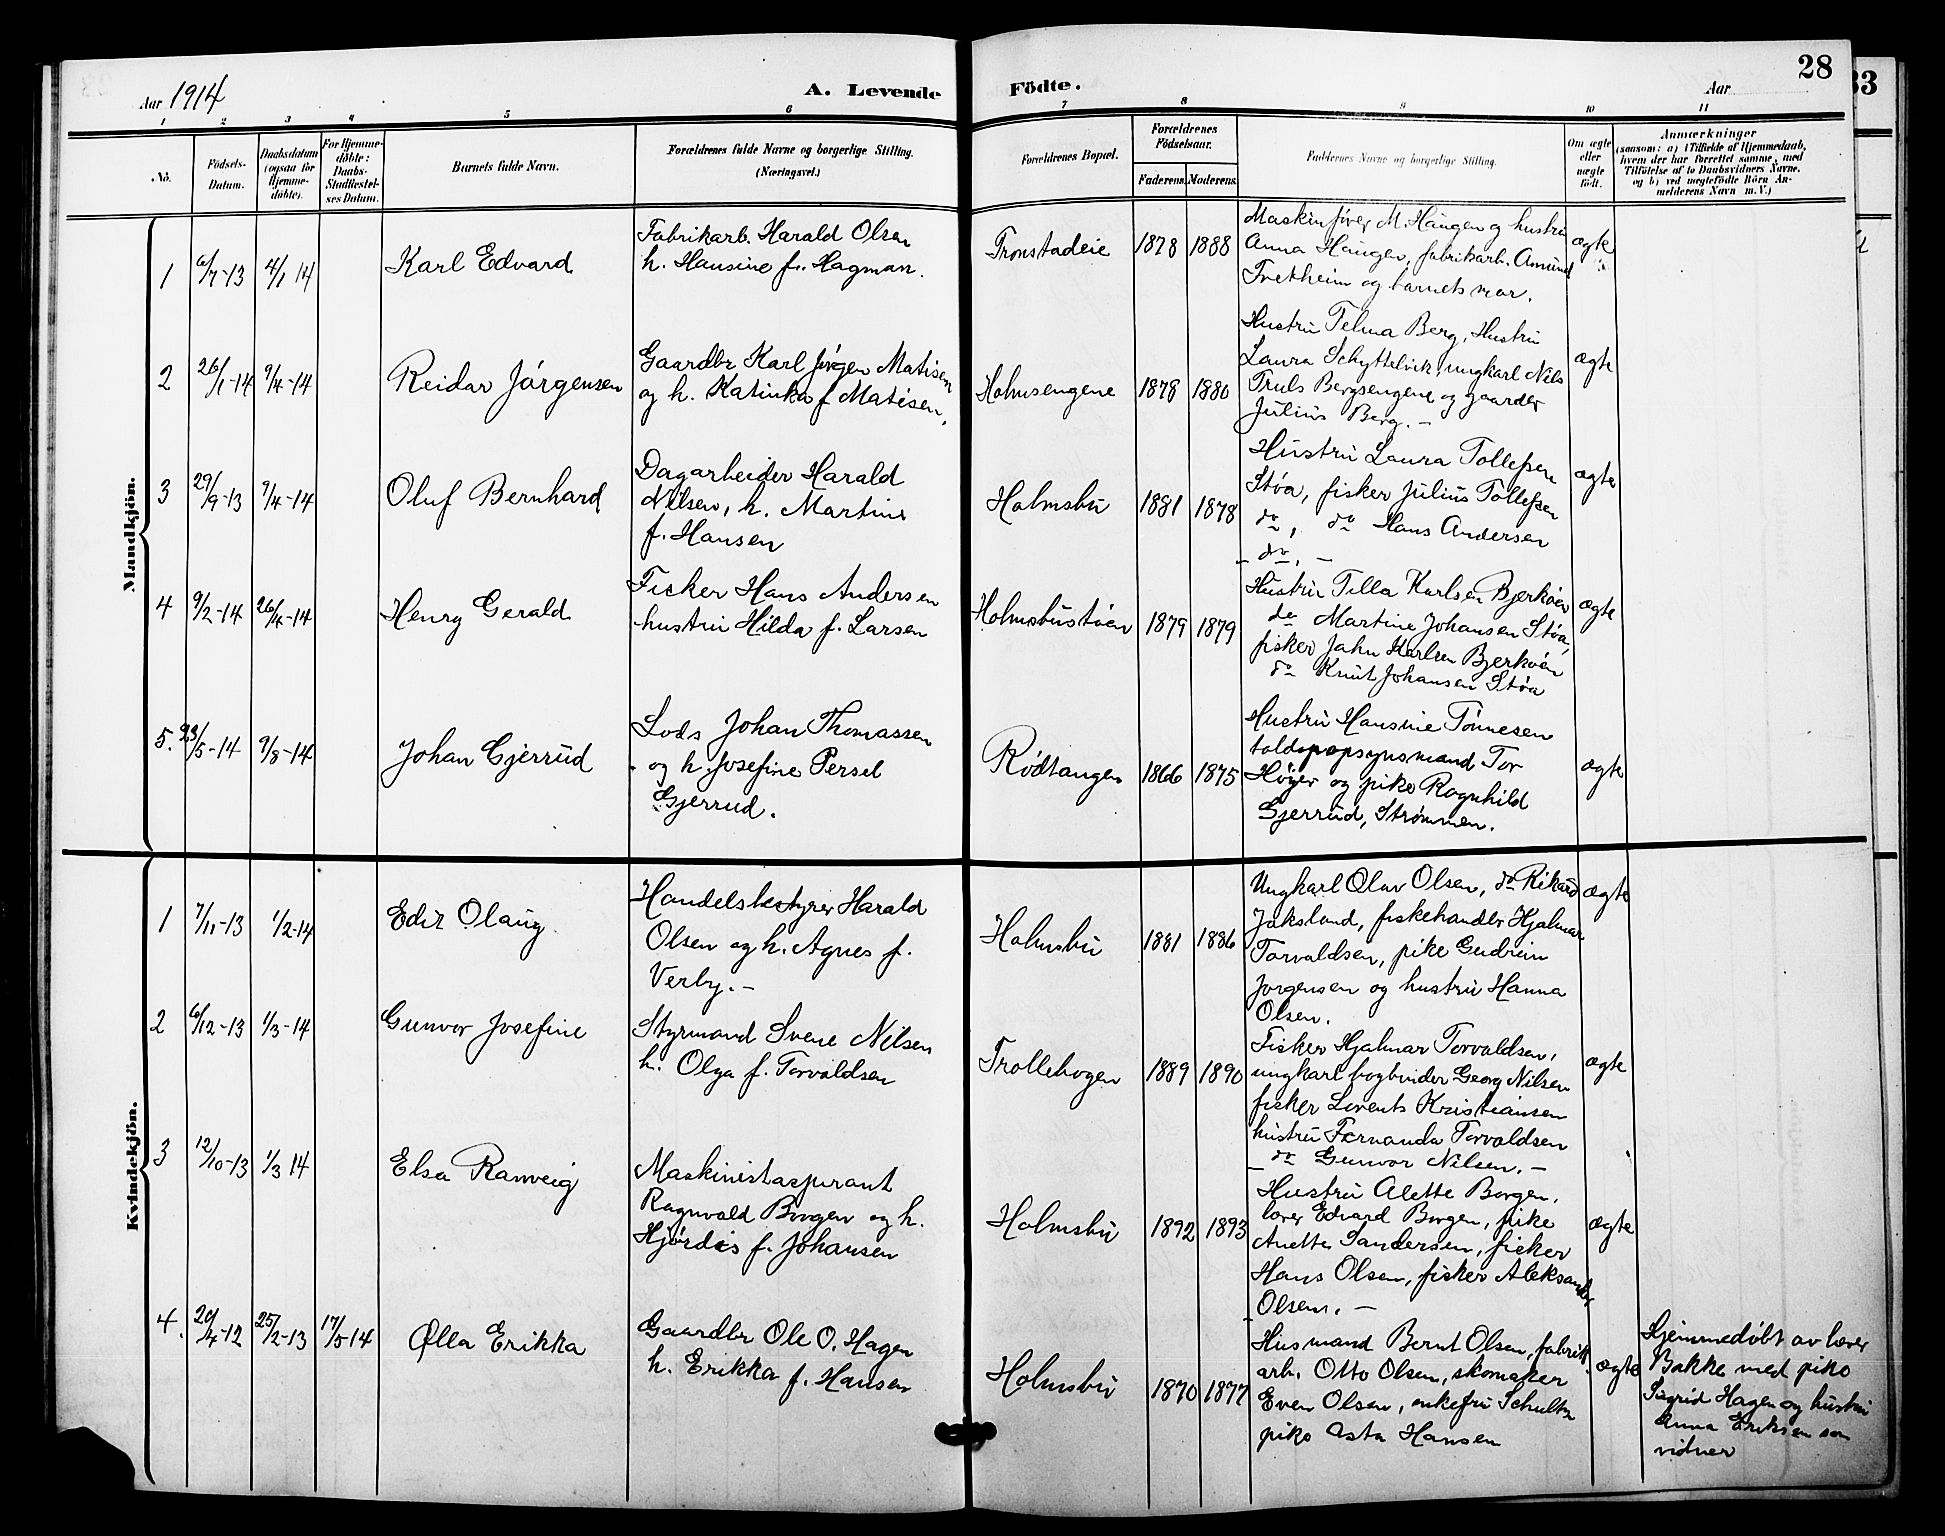 Aar 1914
A. Levende
Födte.
Aar
28
33
1 2 3 4 5 6 7 8 9 10 11
No.
Födsels-
Datum.
Daabsdatum
(ogsaa for
Hjemme-
döbte).
For Hjemme-
döbte:
Daabs-
Stadfæstel-
ses Datum.
Barnets fulde Navn.
Forældrenes fulde Navne og borgerlige Stilling.
(Næringsvei.)
Forældrenes Bopæl.
Forældrenes
Födselsaar.
Faderens. Moderens.
Faddernes Navne og borgerlige Stilling.
Om ægte
eller
uægte
født.
Anmærkninger
(saasom: a) i Tilfælde af Hjemmedaab,
hvem der har forrettet samme, med
Tilföielse af to Daabsvidners Navne,
og b) ved uægtefödte Börn An-
melderens Navn m. V.)
Mandkjön.
1
6/7-13
4/1 14
Karl Edvard
Fabrikarb. Harald Olsen
h. Hansine f. Hagman.
Tronstadeie
1878
1888
Maskinfører M. Haugen og hustru
Anna Haugen, fabrikarb. Amund
Tretheim og barnets mor.
ægte
2
26/1-14
9/4-14
Reidar Jørgensen
Gaardbr Karl Jörgen Matisen
og h. Katinka f. Matisen.
Holmsengene
1878
1880
Hustru Telma Berg, Hustru
Laura Schyttelvik, ungkarl Nils
Truls Bergsengene og gaarder
Julius Berg. -
ægte
3
29/9-13
9/4-14
Oluf Bernhard
Dagarbeider Harald
Nilsen, h. Martine
f. Hansen
Holmsbu
1881
1878
Hustru Laura Tollefsen
Støa, fisker Julius Tollefsen
do, do Hans Andersen
- do. -
ægte
4
9/2-14
26/4-14
Henry Gerald
Fisker Hans Andersen
hustru Hilda f. Larsen
Holmsbustöen
1879
1879
Hustru Tilla Karlsen Bjerköen
do Martine Johansen Støa,
fisker Jahn Karlsen Bjerköen
do Knut Johansen Støa
ægte
5.
23/5-14
9/8-14
Johan Gjerrud
Lods Johan Thomassen
og h. Josefine Persel
Gjerrud.
Rödtangen
1866
1875
Hustru Hansine Tönnesen
toldopopsynsmand Tor
Höyer og pike Ragnhild
Gjerrud, Strømmen.
ægte
Kvindekjön.
1
7/11-13
1/2-14
Edit Olaug
Handelsbestyrer Harald
Olsen og h. Agnes f.
Verby. -
Holmsbu
1881
1886
Ungkarl Olav Olsen, do Rikard
Jaksland, fiskehandler Hjalmar
Torvaldsen, pike Gudrun
Jorgensen og hustru Hanna
Olsen.
ægte
2
6/12-13
1/3-14
Gunvor Josefine
Styrmand Svene Nilsen
h. Olga f. Torvaldsen
Trollehogen
1889
1890
Fisker Hjalmar Torvaldsen,
ungkarl bogbinder Georg Nilsen
fisker Lorents Kristiansen
hustru Fernanda Torvaldsen
- do Gunvor Nilsen. -
ægte
3
12/10-13
1/3 14
Elsa Ranveig
Maskinistaspirant
Ragnvald Borgen og h.
Hjørdis f. Johansen
Holmsbu
1892
1893
Hustru Alette Borgen,
lærer Edvard Borgen, pike
Anette Sandersen, fisker
Hans Olsen, fisker Aleksander
Olsen. -
ægte
4.
20/4-12
25/2-13
17/5 14
Ølla Erikka
Gaardbr Ole O. Hagen
h. Erikka f. Hansen
Holmsbu
1870
1877
Husmand Bernt Olsen, fabrikk
arb. Otto Olsen, skomaker
Even Olsen, enkefru Schultz
pike Asta Hansen
ægte
Hjemmedöbt av lærer
Bakke med pike
Sigrid Hagen og hustru
Anna Eriksen som
vidner